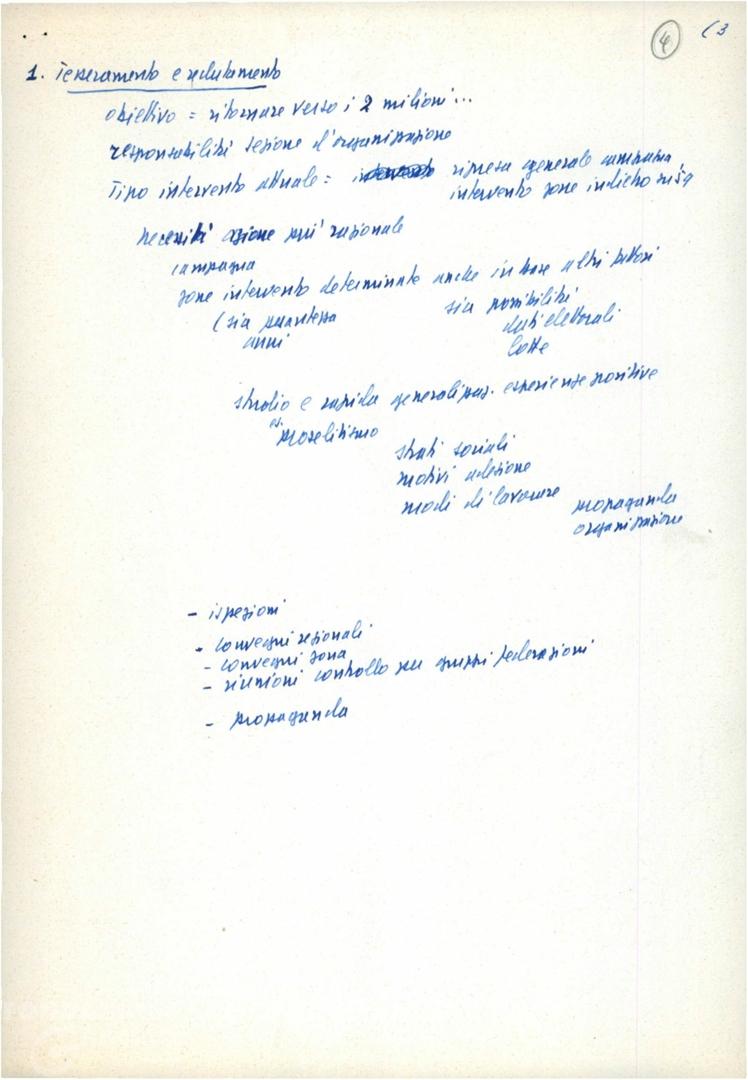 4
(3
1. Tesseramento e reclutamento
obiettivo = ritornare verso i 2 milioni...
responsabilità sezione d'organizzazione
Tipo intervento attuale = ripresa generale campagna
intervento zone indietro
necessità azione più razionale
campagna
zone intervento determinate anche in base altri fattori
(sia
sia possibilità
anni
dati elettorali
lotte
studio e rapida generalizzaz. esperienze positive
es.
proselitismo
strati sociali
motivi adesione
modi di lavorare
propaganda
organizzazione
- ispezioni
- convegni regionali
- convegni zona
- riunioni controllo per gruppi federazioni
- propaganda